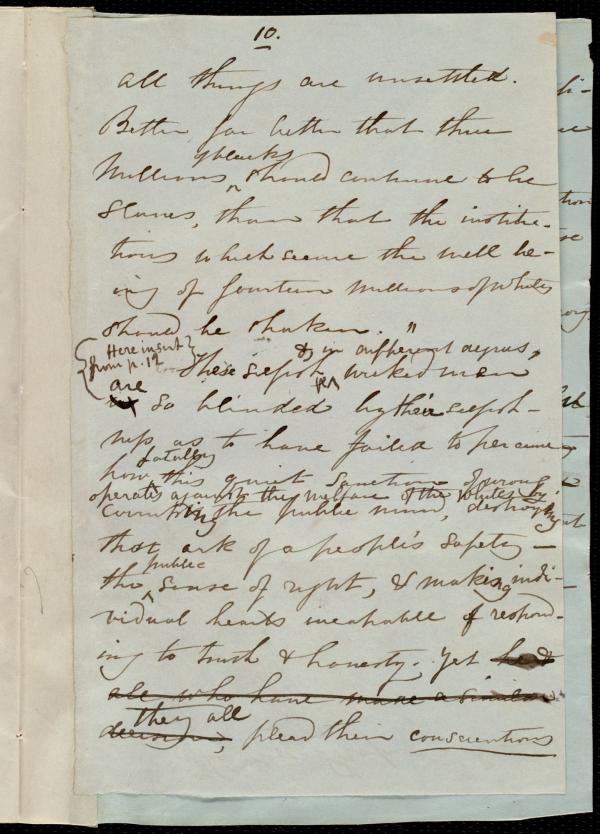 10.
all things are unsettled.
Better, far better that three
blacks
Millions, should continue to be
Slaves, than that the institu-
tions which secure the well be-
ing of fourteen Millions of whites
should be shaken."
Here insert
from p. 12
&, in different degrees,
These selfish wicked men
are so blinded by their selfish-
ness as to have failed to perceive
fatally
how this quiet sanction of wrong
operates against the welfare of the whites by
corrupting the public mind, destroying
that ark of a people's safety—
public
the sense of right, & making indi-
vidual hearts incapable of respond-
ing to truth & honesty. Yet he &
all who have made a similar
they all
decision, plead their conscientious